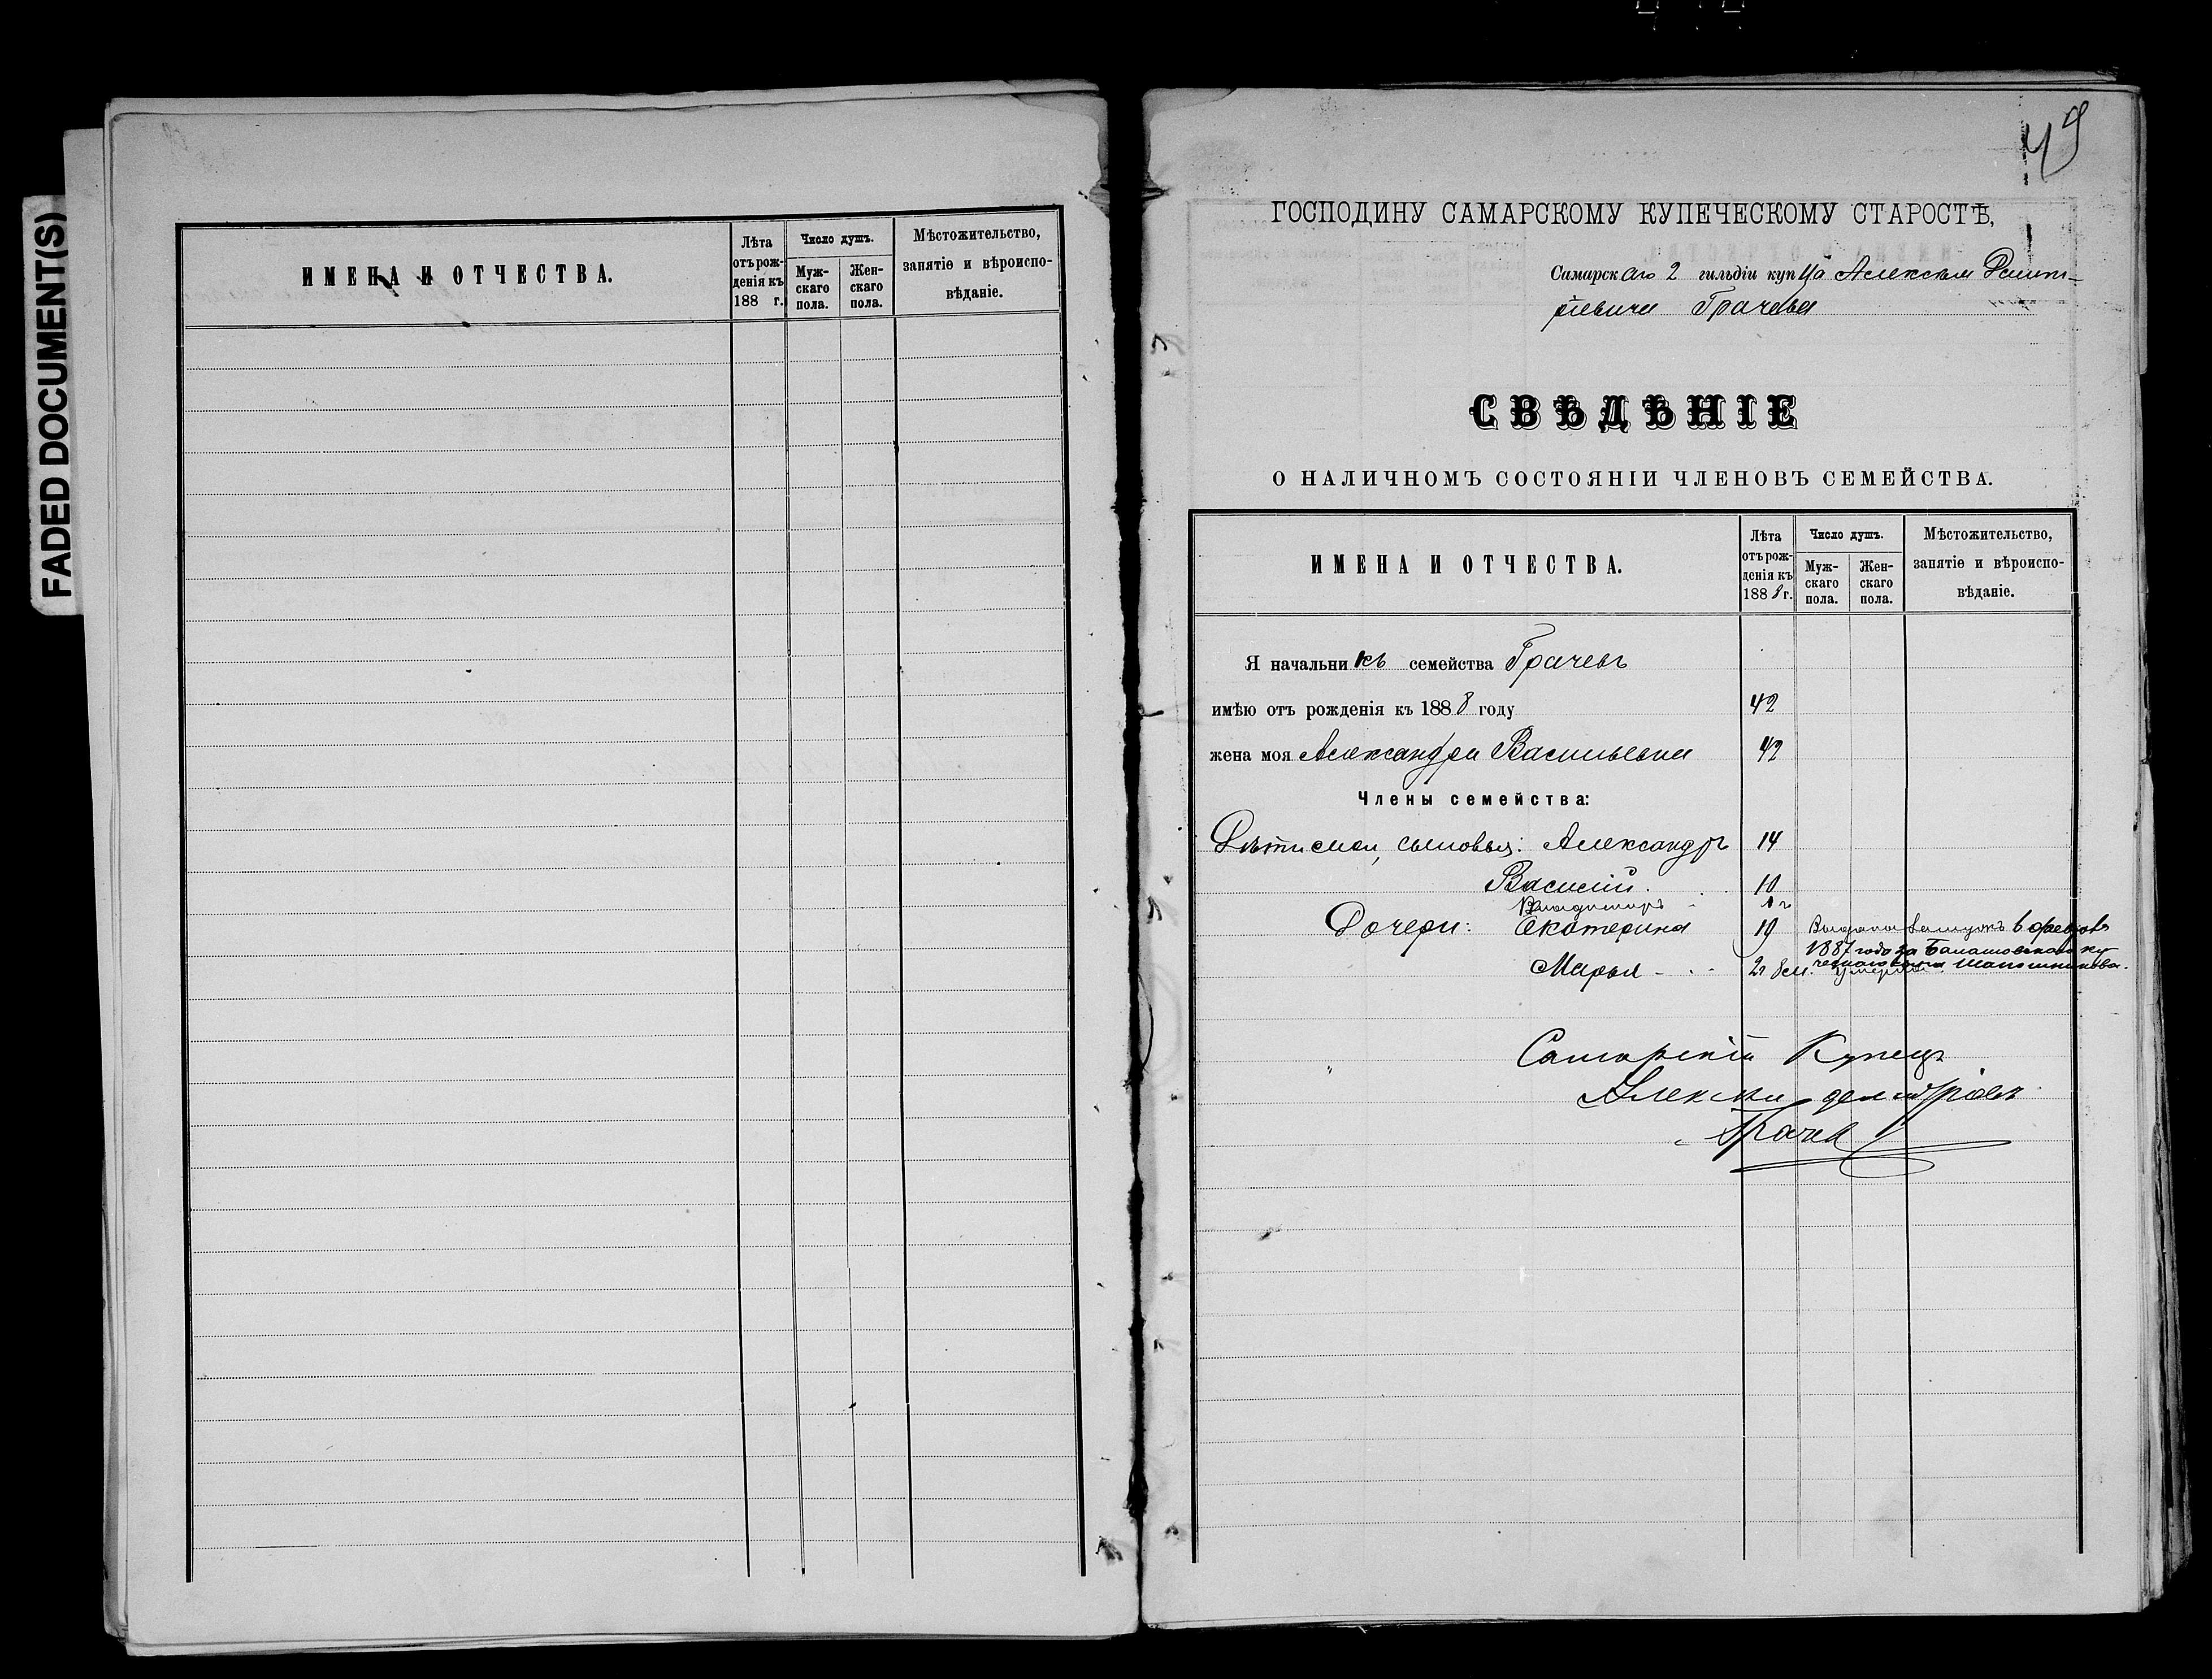 FADED DOCUMENT(S)
ИМЕНА И ОТЧЕСТВА.
Лѣта отъ рож- денія къ 188 г.
Число душъ.
Муж- скаго пола.
Жен- скаго пола.
Мѣстожительство, занятіе и вѣроиспо- вѣданіе.
49
ГОСПОДИНУ САМАРСКОМУ КУПЕЧЕСКОМУ СТАРОСТѢ,
Самарскаго 2 гильдіи купца Алексѣя Дмит-
ріевича Грачева
СВѢДѢНІЕ
О НАЛИЧНОМЪ СОСТОЯНІИ ЧЛЕНОВЪ СЕМЕЙСТВА.
ИМЕНА И ОТЧЕСТВА.
Лѣта отъ рож- денія къ 1888 г.
Число душъ.
Муж- скаго пола.
Жен- скаго пола.
Мѣстожительство, занятіе и вѣроиспо- вѣданіе.
Я начальникъ семейства Грачевъ
имѣю отъ рожденія къ 1888 году 42
жена моя Александра Васильевна 42
Члены семейства:
Дѣти мои, сыновья: Александръ 14
Василій 10
Владимиръ 1 г
Дочери: Екатерина 19 Выдана въ замужъ в февралѣ
1887 года за Балашовскаго ку-
печескаго сына Шапошникова.
Марья 2 г 8 м. умерла
Самарскій Купецъ
Алексѣй Дмитріевъ
Грачев